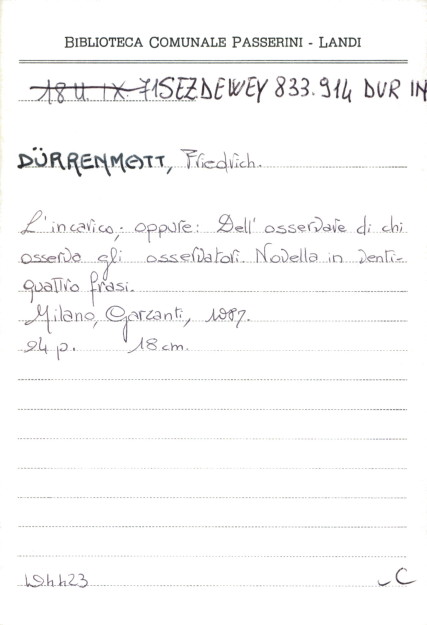 BIBLIOTECA COMUNALE PASSERINI - LANDI
18 U. IX. 71 SEZ DEWEY 833.914 DUR IN
DÜRRENMATT, Friedrich.
L'incarico; oppure: Dell'osservare di chi
osserva gli osservatori. Novella in venti-
quattro frasi.
Milano, Garzanti, 1987.
94 p. 18 cm.
C